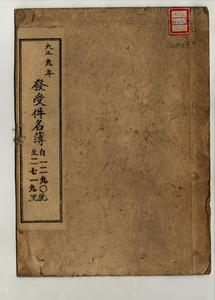 大正九年
發受件名簿
自一二九〇號
至二七一九號